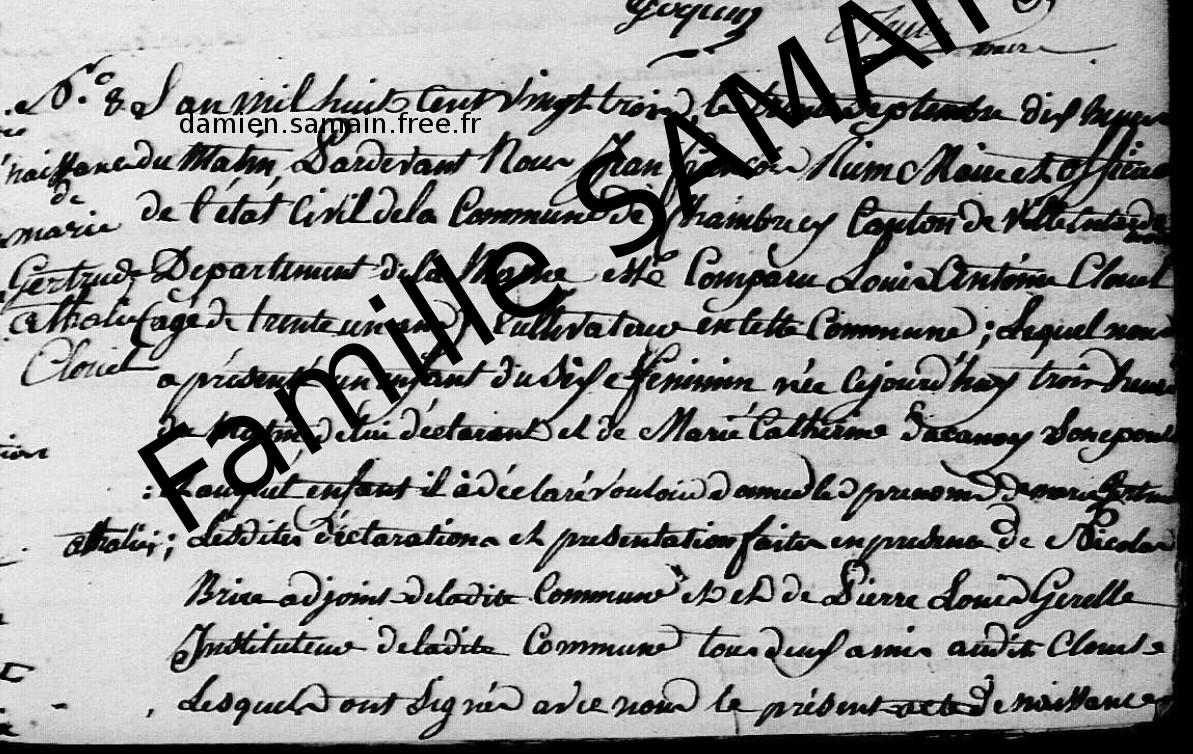 Goquin
maire
N.o 8 L'an mil huit cent vingt trois, le trente septembre dix heures
damien.samain.free.fr
naissance du Matin, Pardevant Nous Jean françois Maire et officier
de
marie de l'état Civil de la Commune de Chambrecy Canton de Ville en tarde
Gertrude Departement de la Marne est Comparu Louis Antoine Clouet
Athalie (agé de trente un ans) Cultivateur en cette Commune; Lequel nous
Clouet a présenté un enfant du Sexe féminin née Cejourd'huy trois heures
du Matin de lui déclarant et de Marie Catherine Son epouse
: Et auquel enfant il a déclaré vouloir donner les prenoms de marie Gertrude
athalie; Lesdites déclarations et presentation faites en presence de Nicolas
Brice adjoint de ladite Commune et et de Pierre Louis Gerelle
Instituteur de ladite Commune tous deux amis audit Clouet
Lesquels ont Signés avec nous le présent acte de naissance
Famille SAMAIN